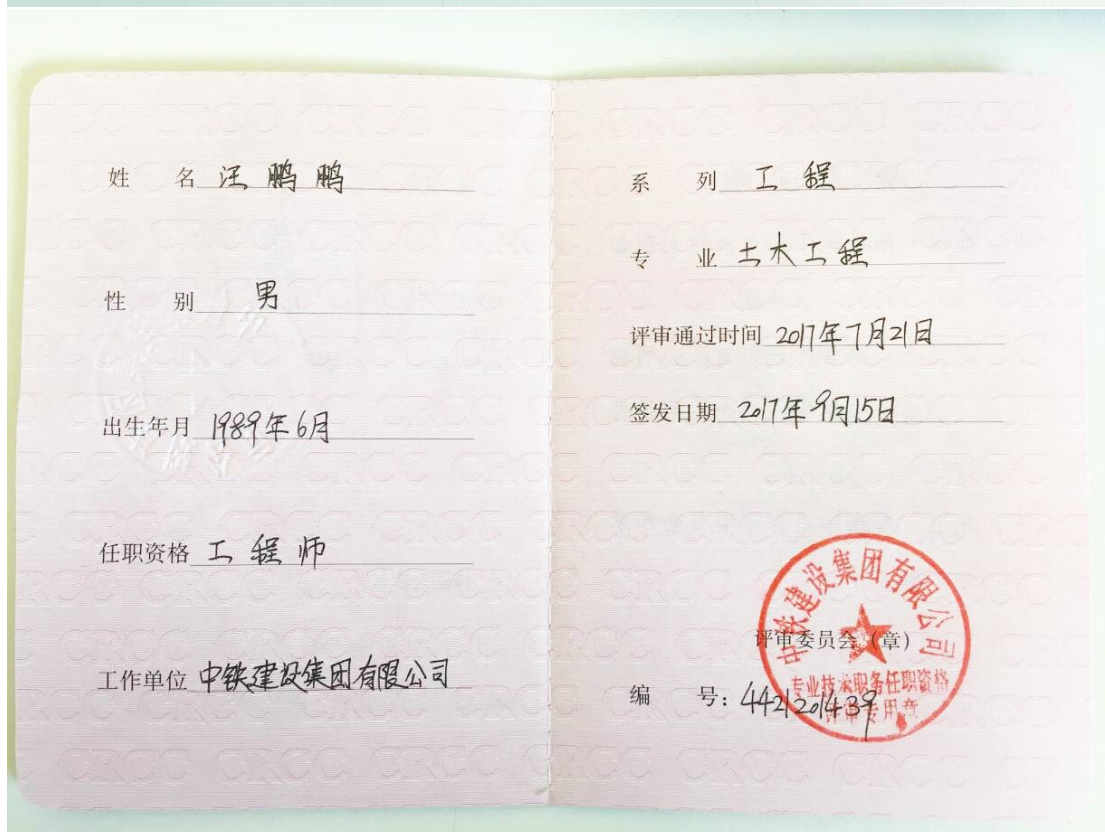 姓 名 汪鹏鹏
性 别 男
出生年月 1989年6月
任职资格 工程师
工作单位 中铁建设集团有限公司
系 列 工程
专 业 土木工程
评审通过时间 2017年7月21日
签发日期 2017年9月15日
中铁建设集团有限公司
评审委员会（章）
专业技术职务任职资格
评审专用章
编 号：4421201439
CRCC